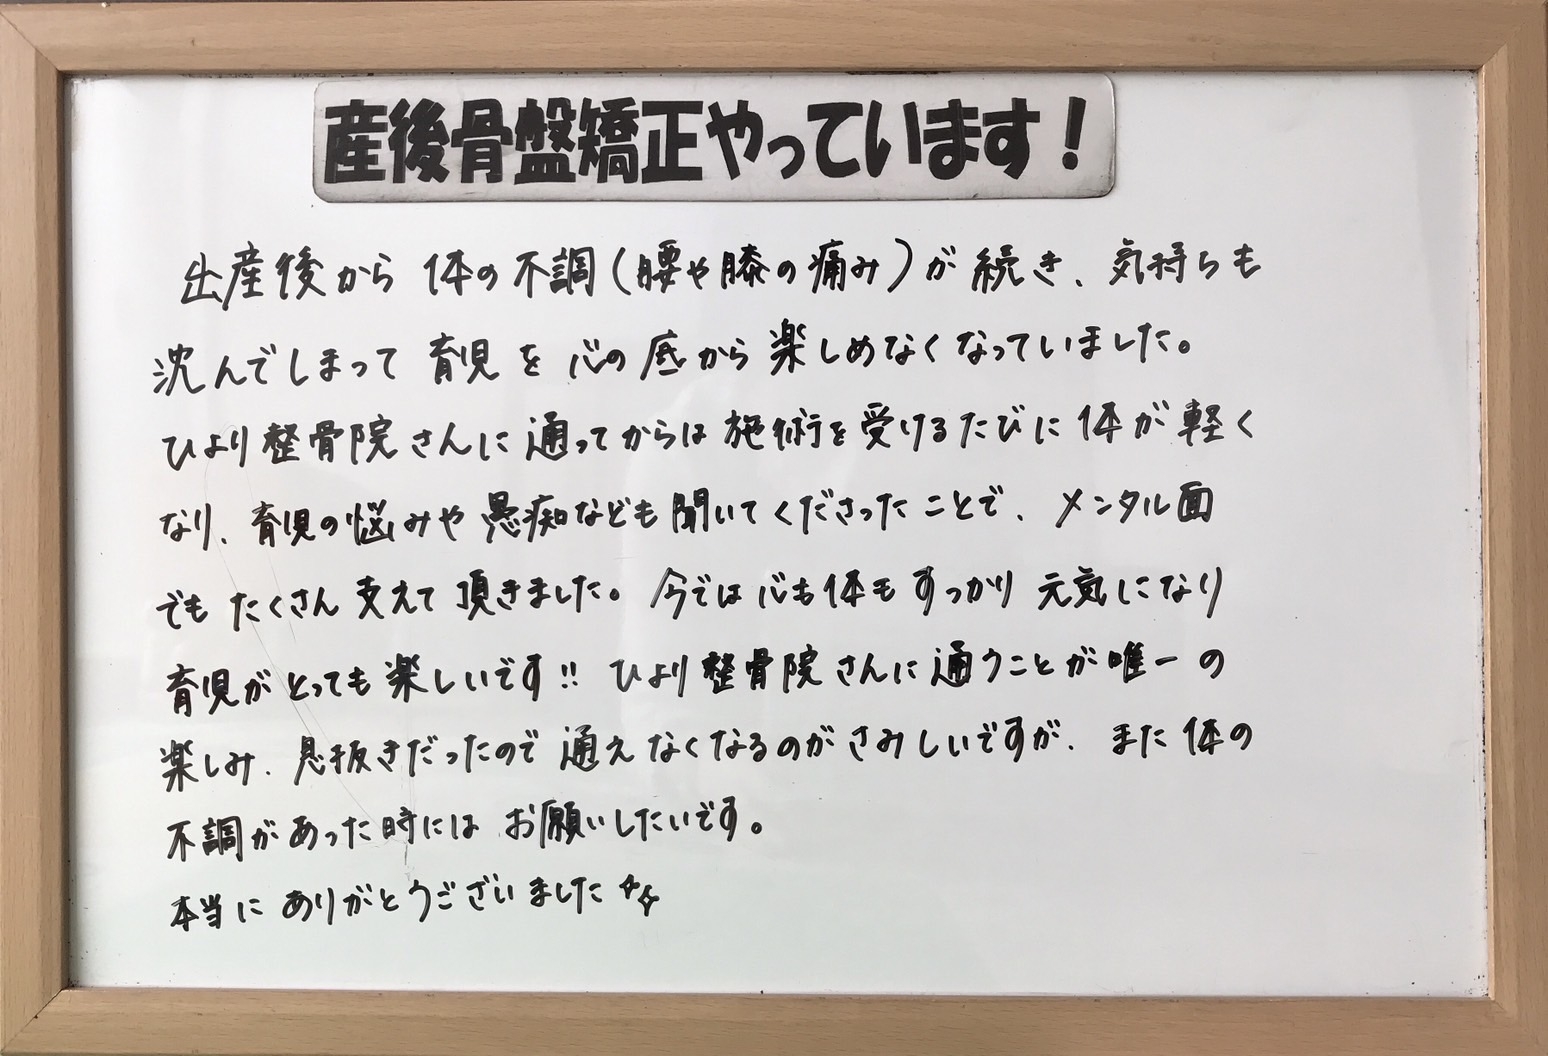 産後骨盤矯正やっています！
出産後から体の不調(腰や膝の痛み)が続き、気持ちも
沈んでしまって育児を心の底から楽しめなくなっていました。
ひより整骨院さんに通ってからは施術を受けるたびに体が軽く
なり、育児の悩みや愚痴なども聞いてくださったことで、メンタル面
でもたくさん支えて頂きました。今では心も体もすっかり元気になり
育児がとっても楽しいです!! ひより整骨院さんに通うことが唯一の
楽しみ、息抜きだったので通えなくなるのがさみしいですが、また体の
不調があった時にはお願いしたいです。
本当にありがとうございました✨